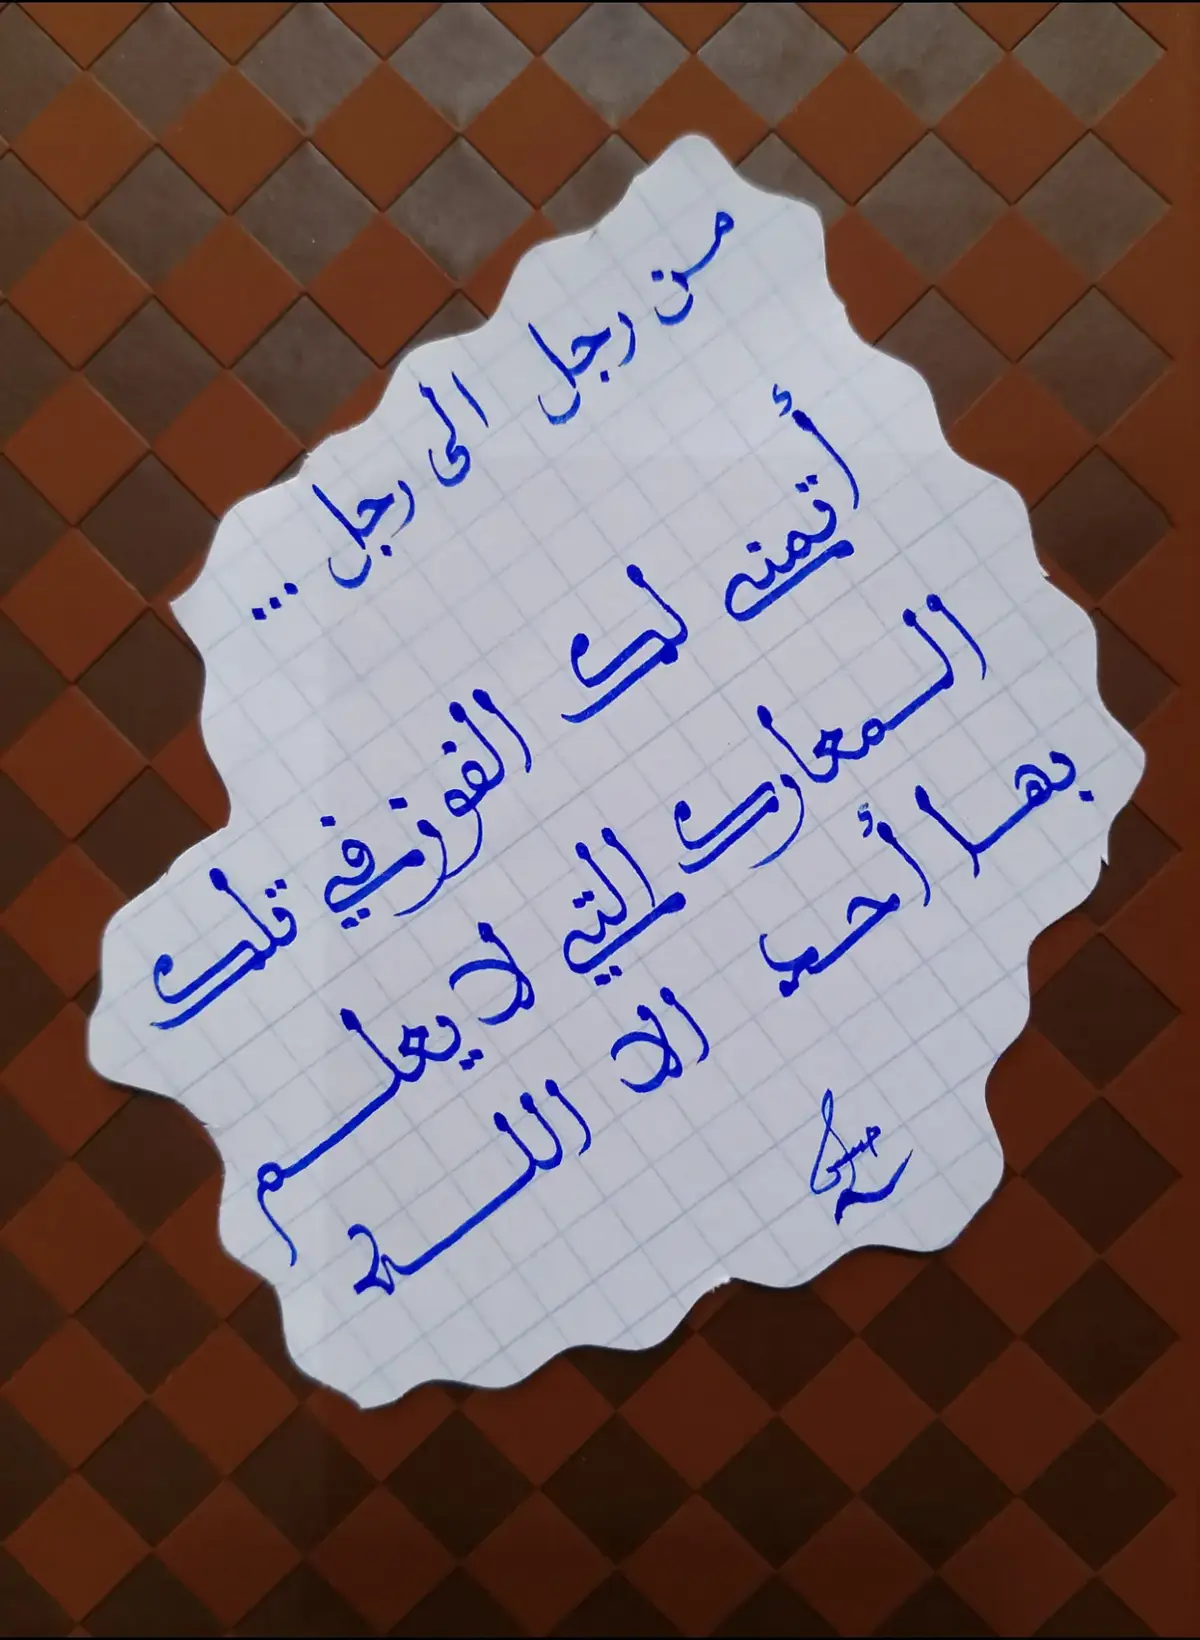 من رجل الى رجل ...
أتمنى لك الفوز في تلك
المعارك التي لا يعلم
بها أحد الا الله